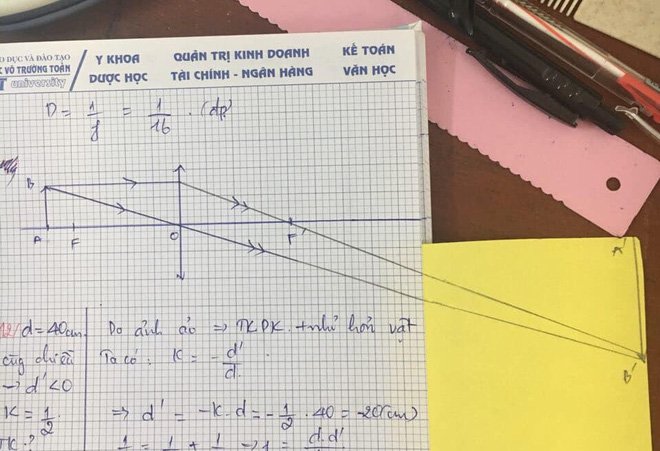 DỤC VÀ ĐÀO TẠO
VÕ TRƯỜNG TOẢN
university
Y KHOA
DƯỢC HỌC
QUẢN TRỊ KINH DOANH
TÀI CHÍNH - NGÂN HÀNG
KẾ TOÁN
VĂN HỌC
D = 1/f = 1/16 . (dp)
B
A F O F'
A'
B'
12/ d = 40cm
cùng chiều
→ d' < 0
K = 1/2
TK ?
Do ảnh ảo ⇒ TKPK. + nhỏ hơn vật
Ta có: K = - d'/d .
⇒ d' = -K.d = - 1/2 . 40 = -20(cm)